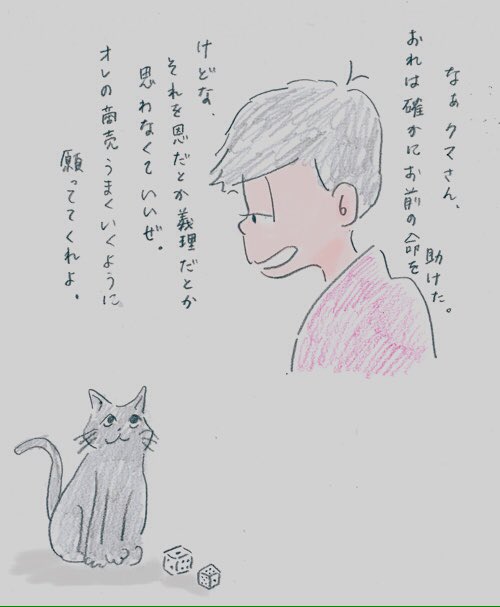 なぁクマさん、
おれは確かにお前の命を
助けた。
けどな、
それを恩だとか義理だとか
思わなくていいぜ。
オレの商売うまくいくように、
願っててくれよ。